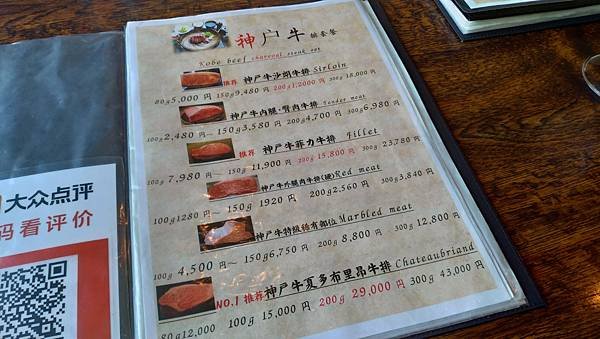 神户牛 套餐
Kobe beef charcoal steak set
推荐 神户牛沙朗牛排 Sirloin
80g 5,000 円~ 150g 9,480 円 200g 1,2000 円 300g 18,000 円
神户牛内腿·臀肉牛排 Tender meat
100g 2,480 円~ 150g 3,580 円 200g 4,700 円 300g 6,980 円
推荐 神户牛菲力牛排 Fillet
100g 7,980 円~ 150g 11,900 円 200g 15,800 円 300g 23,780 円
神户牛外腿肉牛排(硬)Red meat
100g 1280 円~ 150g 1920 円 200g 2,560 円 300g 3,840 円
神户牛特级稀有部位Marbled meat
100g 4,500 円~ 150g 6,750 円 200g 8,800 円 300g 12,800 円
NO.1 推荐 神户牛夏多布里昂牛排 Chateaubriand
80g 12,000 100g 15,000 円 200g 29,000 円 300g 43,000 円
大众点评
码看评价